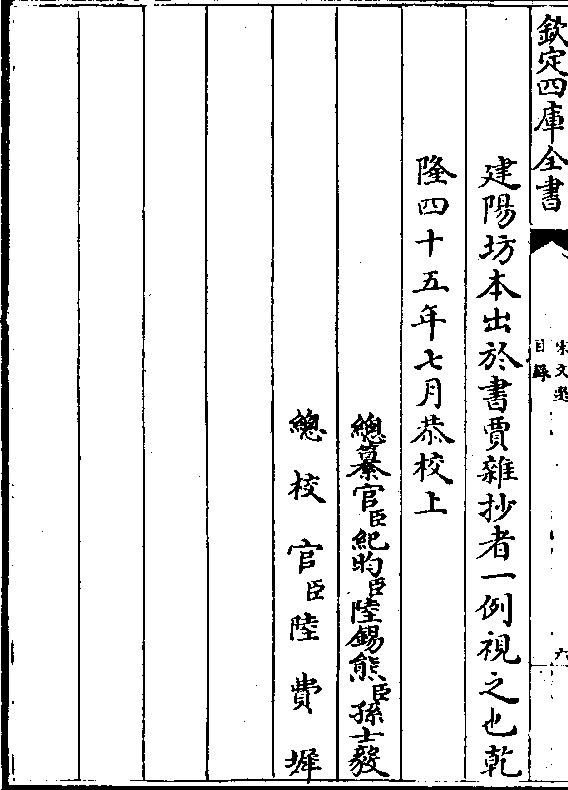 欽定四庫全書
宋文選
目錄
六
建陽坊本出於書賈雜抄者一例視之也乾
隆四十五年七月恭校上
總纂官臣紀昀臣陸錫熊臣孫士毅
總校官臣陸費墀